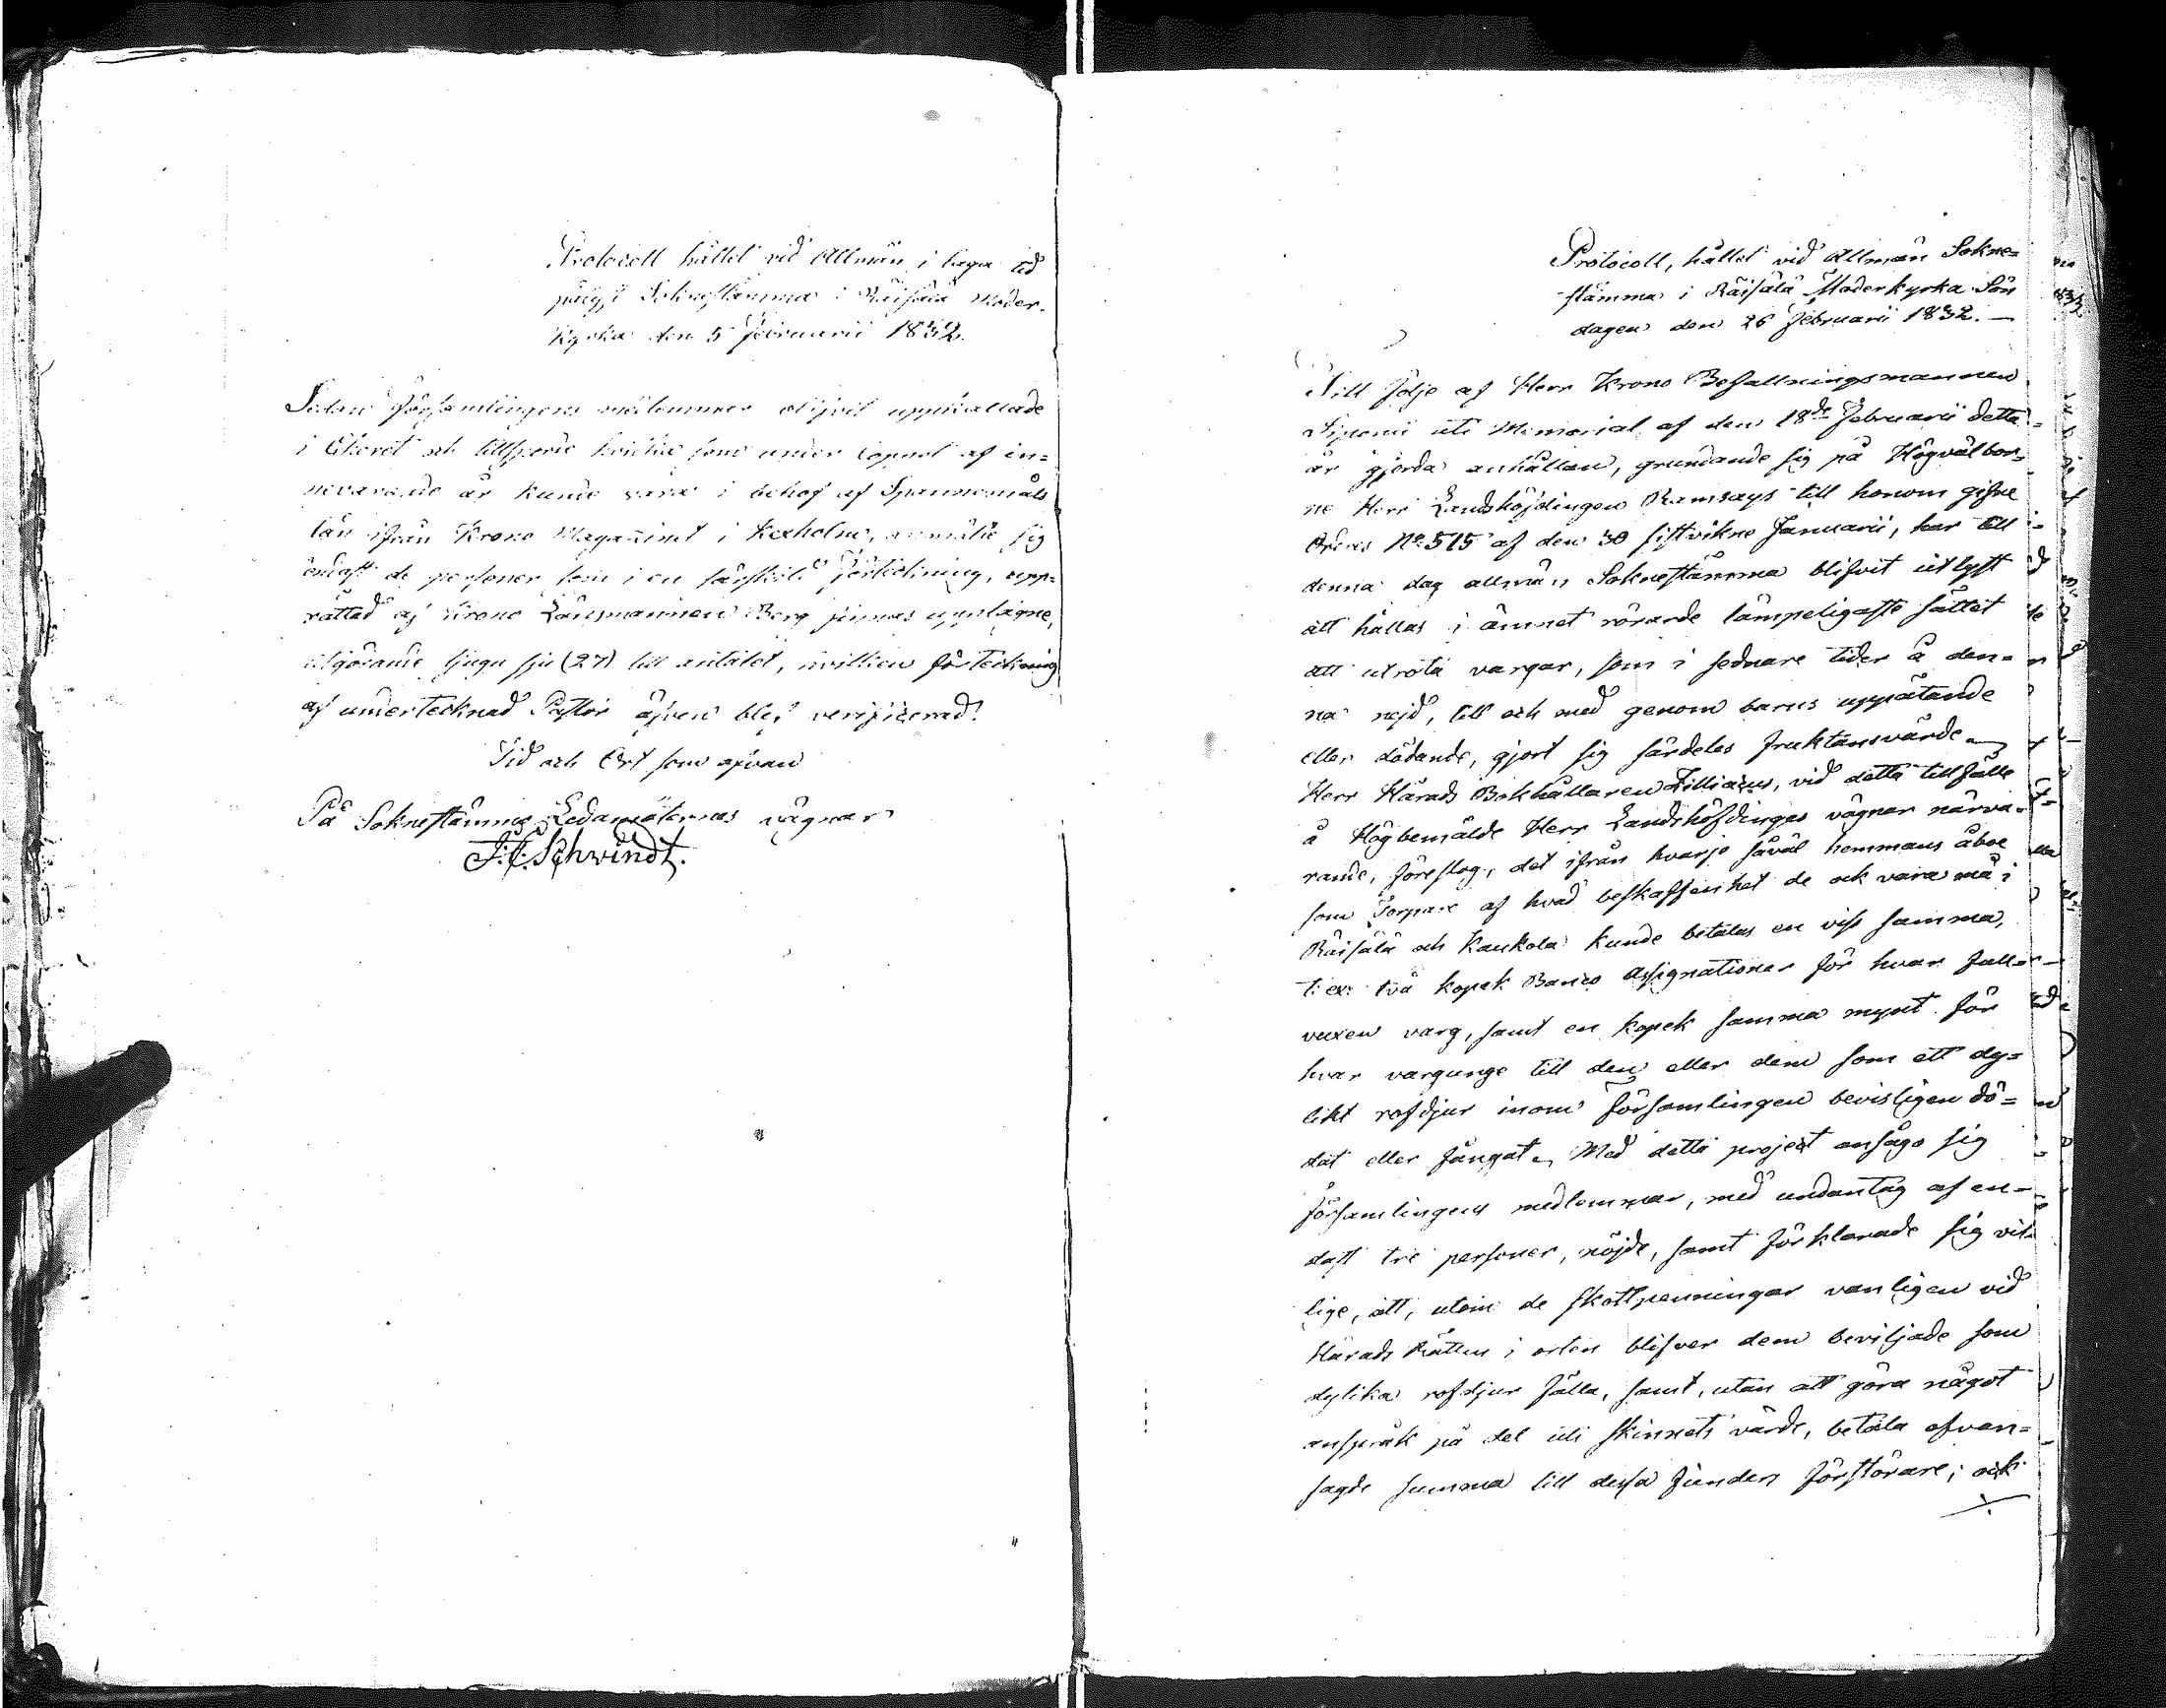 Protocoll hållet vid Allmän i laga tid
pålyst Soknestämma i Räisälä Moder-
kyrka den 5 Februarii 1832.
Sedan Församlingens medlemmar blifvit uppkallade
i Choret och tillsporde hvilka som under loppet af in=
nevarande år kunde vara i behof af Spannemåls
lån ifrån Krono Magasinet i Kexholm, anmälte sig
endast de personer som i en särskild Förteckning, upp=
rättad af Krono Länsmannen Berg finnas upptagne,
utgörande tjugu sju (27) till antalet, hvilken förteckning
af undertecknad Pastor äfven blef verificerad.
Tid och Ort som ofvan
På Soknestämma Ledamöternas vägnar
Schwindt.
Protocoll, hållet vid Allmän Sokne=
stämma i Räisälä Moderkyrka Sön
dagen den 26 Februarii 1832. —
Till följe af Herr Krono Befallningsmannen
uti Memorial af den 18de Februarii detta
år gjorda anhållan, grundande sig på Högvälbor=
ne Herr Landshöfdingen Ramsays till honom gifne
Ordres No 515 af den 30 sistvikne Januarii, har till
denna dag allmän Soknestämma blifvit utlyst
att hållas i ämnet rörande lämpeligaste sättet
att utrota vargar, som i sednare tider å den=
na nejd, till och med genom barns uppätande
eller dödande, gjort sig särdeles fruktansvärde.
Herr Härads Bokhållaren Lilliacus, vid detta tillfälle
å Högbemälde Herr Landshöfdinges vägnar närva=
rande, föreslog, det ifrån hvarje såväl hemmans åboe
som Torpare af hvad beskaffenhet de ock vara må i
Räisälä och Kaukola kunde betalas en viss summa,
t: ex: två kopek Banco Assignationer för hvar full=
vuxen varg, samt en kopek samma mynt för
hvar vargunge till den eller dem som ett dy=
likt rofdjur inom Församlingen bevisligen dö=
dat eller fångat. Med detta project ansågo sig
församlingens medlemmar, med undantag af en=
dast tre personer, nöjde, samt förklarade sig vil=
lige, att, utom de skottpenningar vanligen vid
Härads Rätten i orten blifver dem beviljade som
dylika rofdjur fälla, samt, utan att göra något
anspråk på del uti skinnets värde, betala ofvan=
sagde summa till dessa fienders förstörare; och